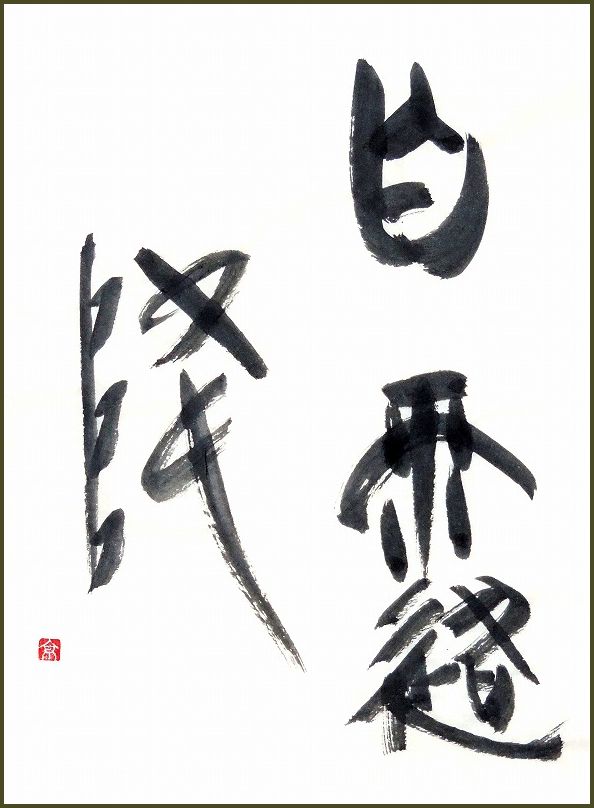 白露
降